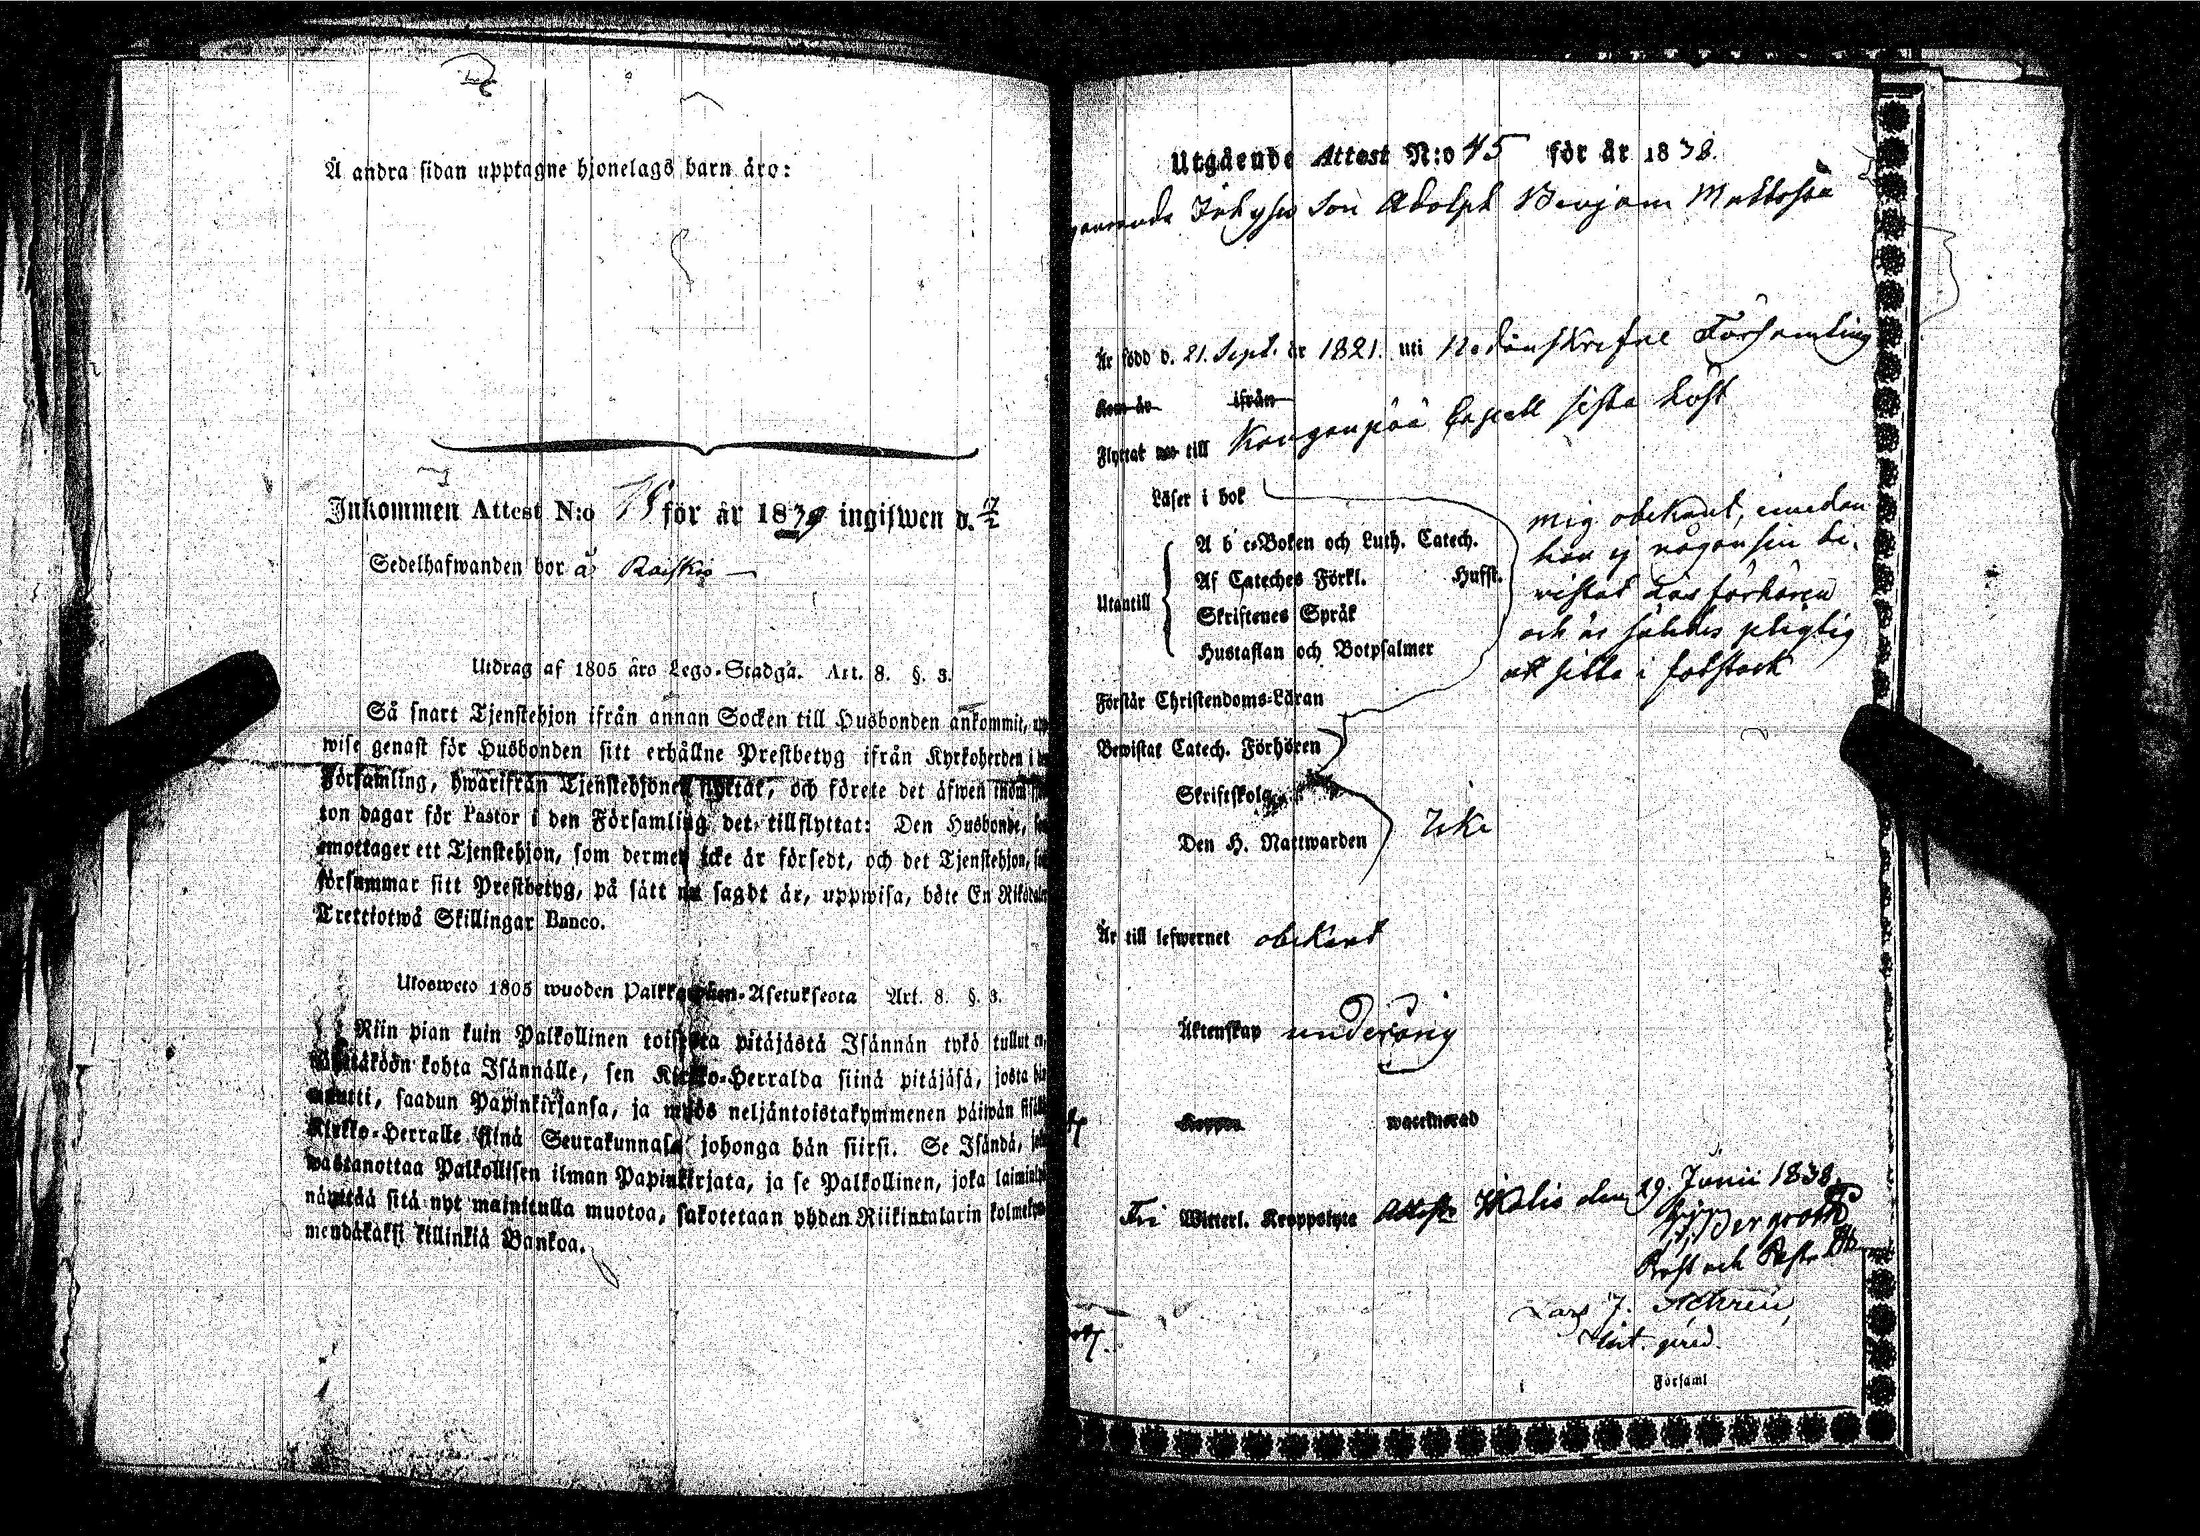 Å andra sidan upptagne hjonelags barn äro:
Inkommen Attest N:o för år 1839 ingifwen d. 17/2
Sedelhafwanden bor å Raiskio
Utdrag af 1805 års Lego-Stadga. Art. 8. §. 3.
Så snart Tjenstehjon ifrån annan Socken till Husbonden ankommit,
wise genast för Husbonden sitt erhållne Prestbetyg ifrån Kyrkoherden i
Församling, hwarifrån Tjenstehjonet flyttat, och förete det äfwen inom
ton dagar för Pastor i den Församling det tillflyttat: Den Husbonde,
emottager ett Tjenstehjon, som dermed icke är försedt, och det Tjenstehjon,
försummar sitt Prestbetyg, på sätt nu sagdt är, uppwisa, böte En Riksdaler
Trettiotwå Skillingar Banco.
Utosweto 1805 wuoden Palkkawäen-Asetuksesta Art. 8. §. 3.
Niin pian kuin Palkollinen toisesta pitäjästä Isännän tykö tullut on,
näyttäköön kohta Isännälle, sen Kirkko-Herralda siinä pitäjäsä, josta hän
muutti, saadun Papinkirjansa, ja myös neljäntoistakymmenen päiwän sisällä
Kirkko-Herralle siinä Seurakunnasa johonga hän siirsi. Se Isändä,
wastanottaa Palkollisen ilman Papinkirjata, ja se Palkollinen, joka laiminlyö
näyttää sitä nyt mainitulla muotoa, sakotetaan yhden Riikintalarin kolmekym-
mendäkaksi killinkiä Bankoa.
Utgående Attest N:o 45 för år 1838.
Son Adolph Benjam Mattsson
Är född d. 21. Sept. år 1821. uti Nedanskrefne Församling
Kom år ifrån
Flyttat till Kangonpää Capell sista höst
Läser i bok
mig obekant, emedan
han ej någonsin bi-
vistat Läsförhören
och är således pligtig
att sitta i fotstock
Utantill
A b c-Boken och Luth. Catech.
Af Cateches Förkl. Hufst.
Skriftenes Språk
Hustaflan och Botpsalmer
Förstår Christendoms-Läran
Bewistat Catech. Förhören
Skriftskola
Den H. Nattwarden
Icke
Är till lefwernet obekant
Äktenskap underårig
Koppor waccinerad
Fri Witterl. Kroppslyte den 29. Junii 1838.
Bergroth
Prost och
Lars J.
Församl